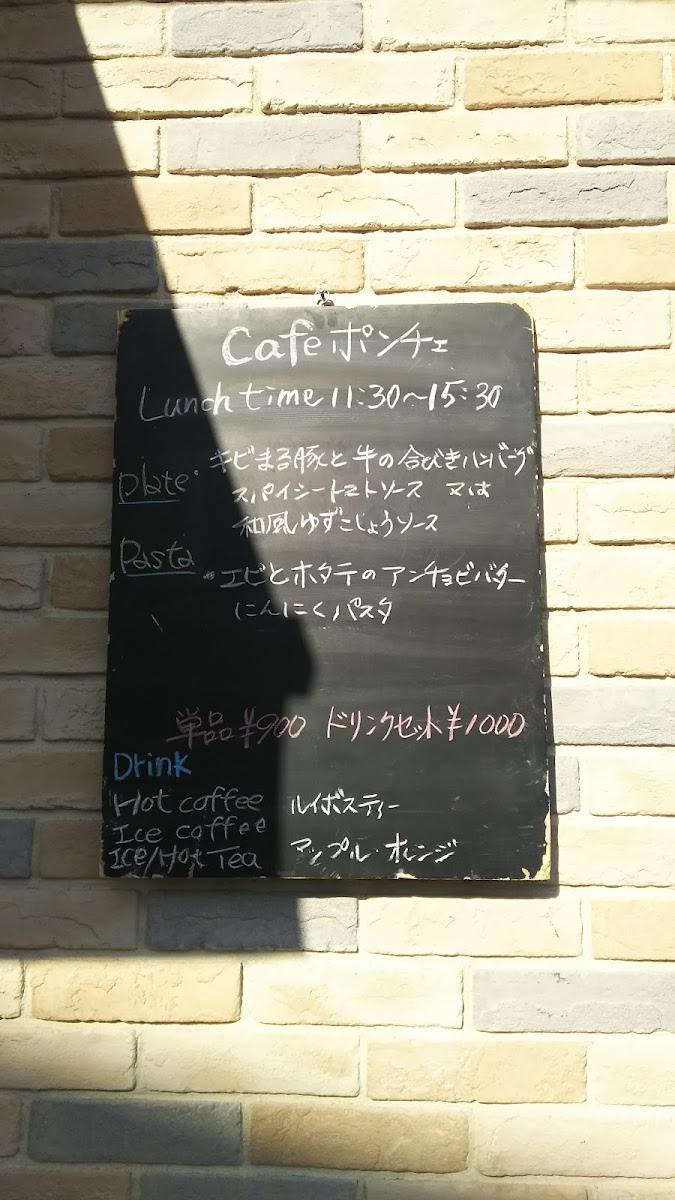 Cafe ポンチェ
Lunch time 11:30～15:30
Plate・キビまる豚と牛の合びきハンバーグ
スパイシートマトソース 又は
和風ゆずこしょうソース
Pasta
・エビとホタテのアンチョビバター
にんにくパスタ
単品¥900 ドリンクセット¥1000
Drink
Hot coffee ルイボスティー
Ice coffee
ICE/Hot Tea アップル・オレンジ